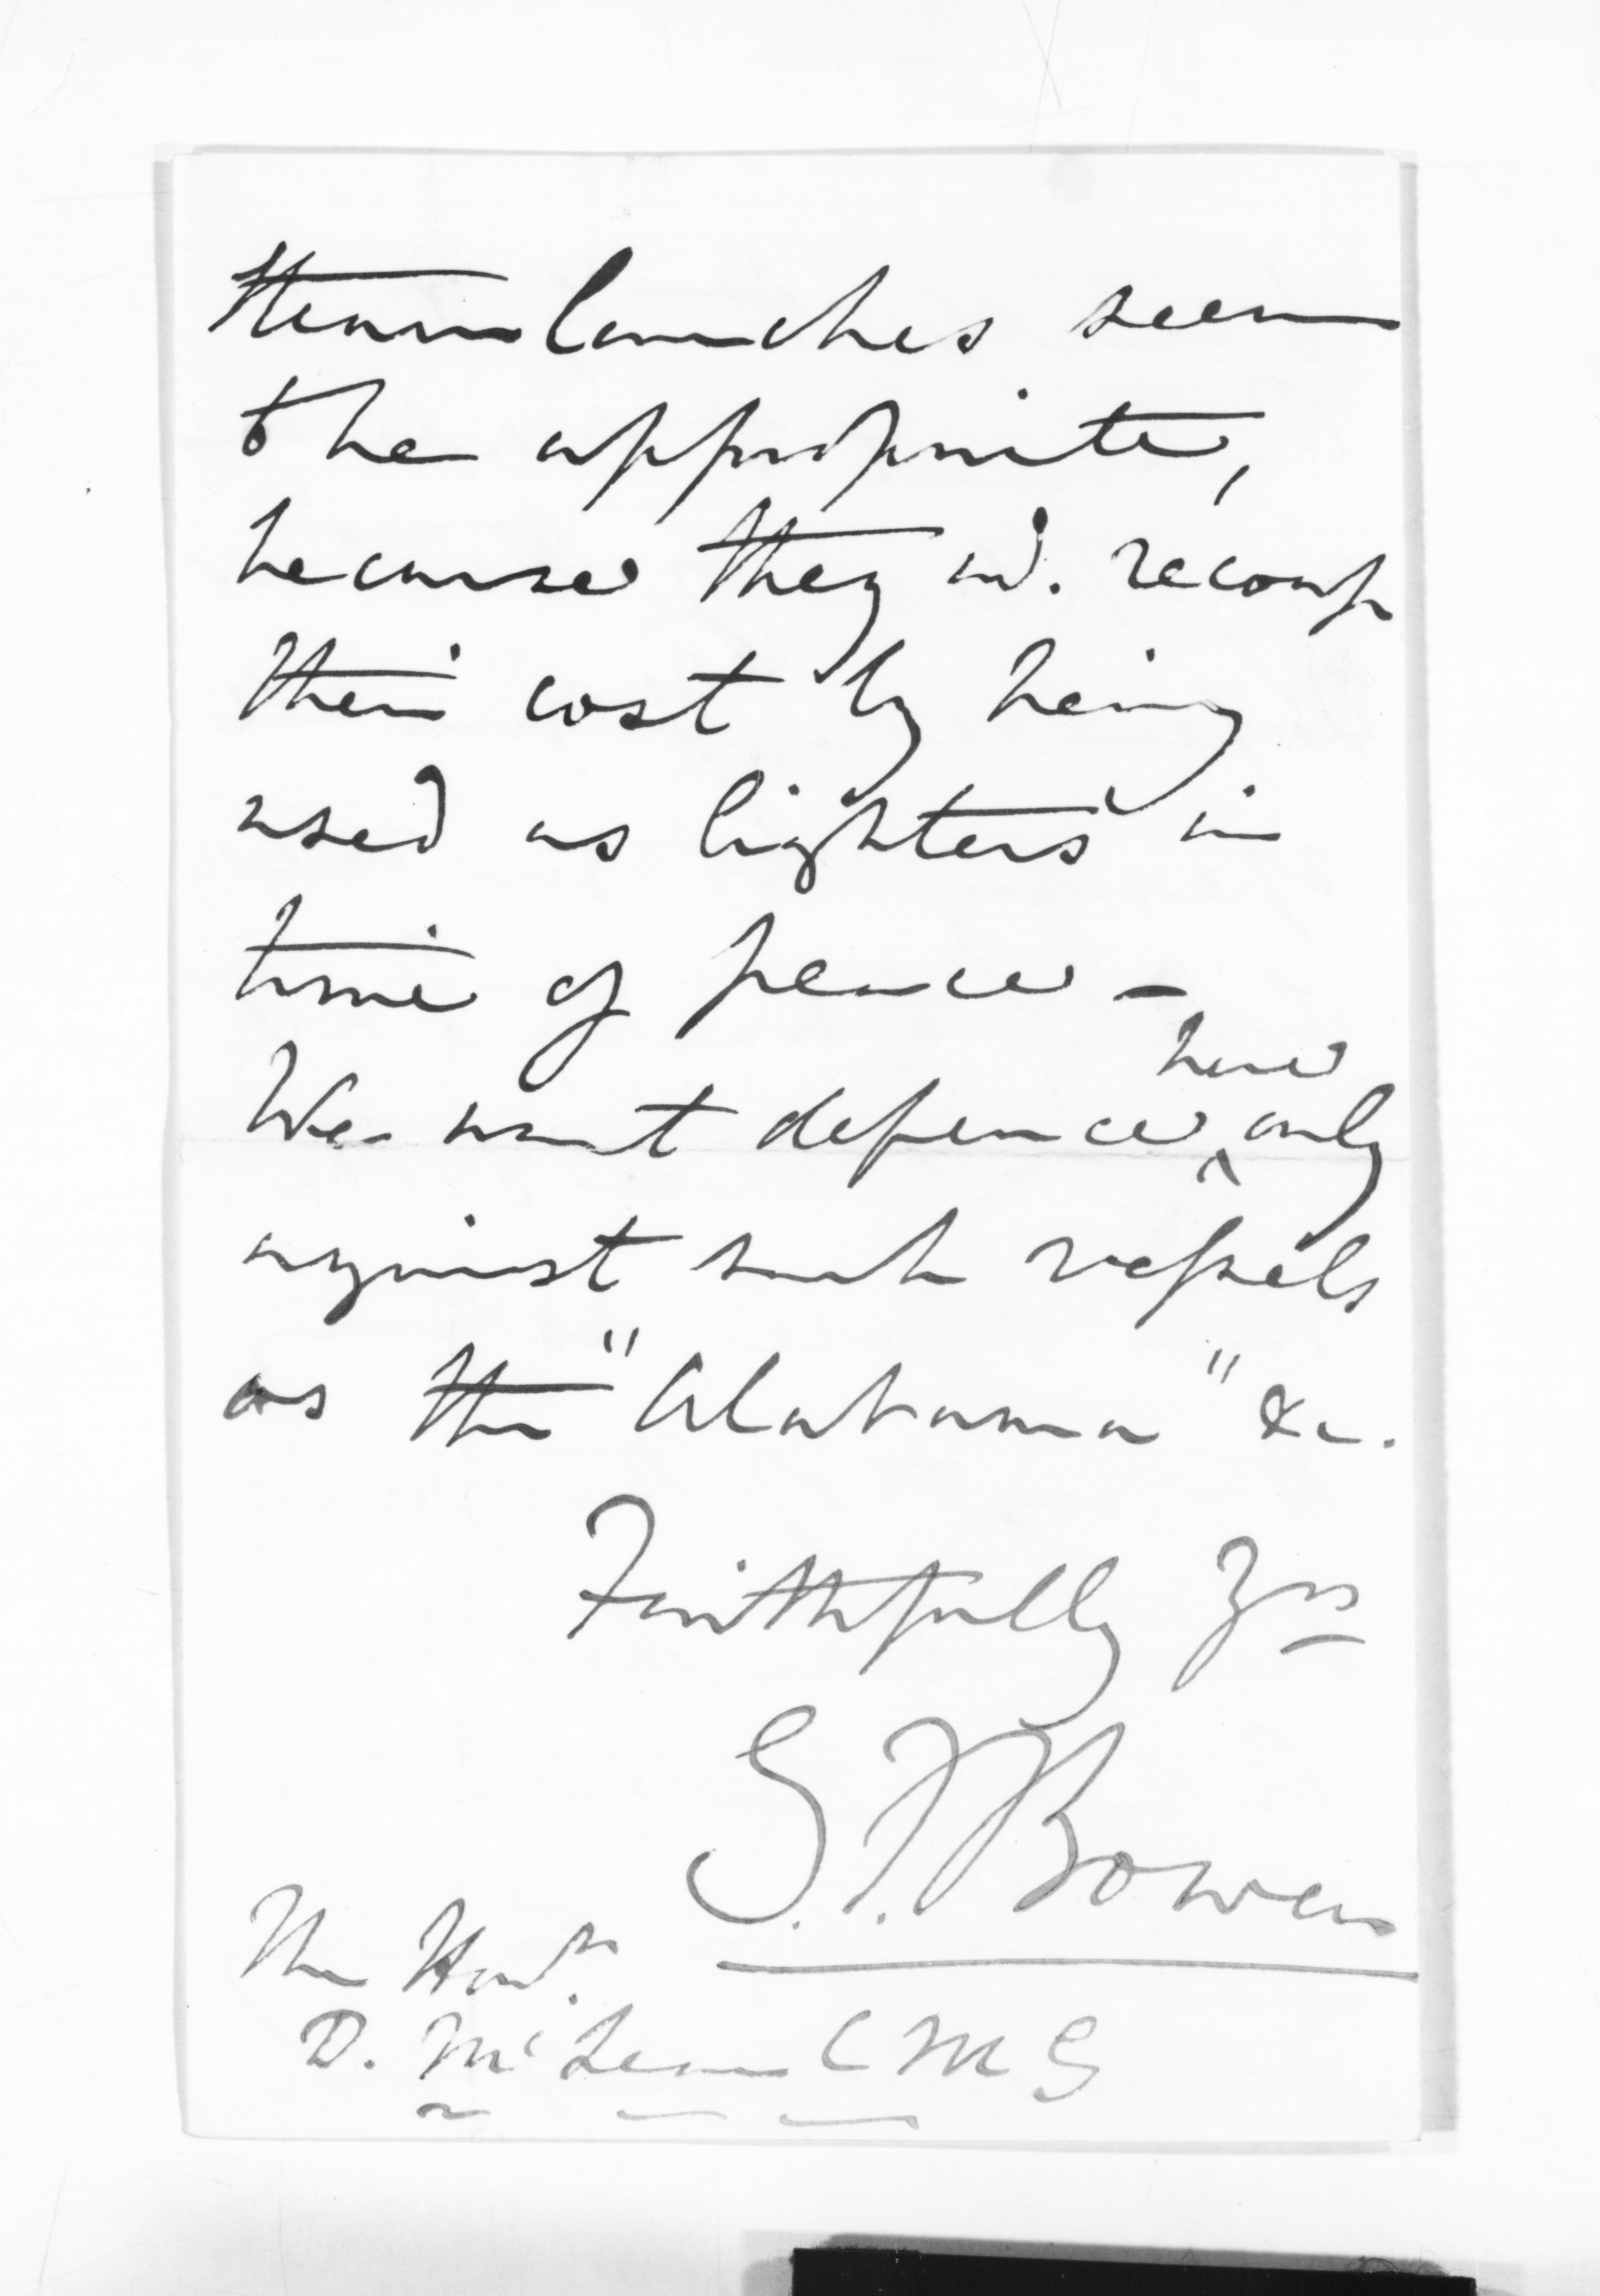 steam launches seem
to be appropriate,
because they wd. recoup
their cost by being
used as lighters in
time of peace –
We want defence here only
against such vessels
as the "Alabama" &c.
Faithfully Yrs
G.F. Bowen
The Honble
D. McLean CMG